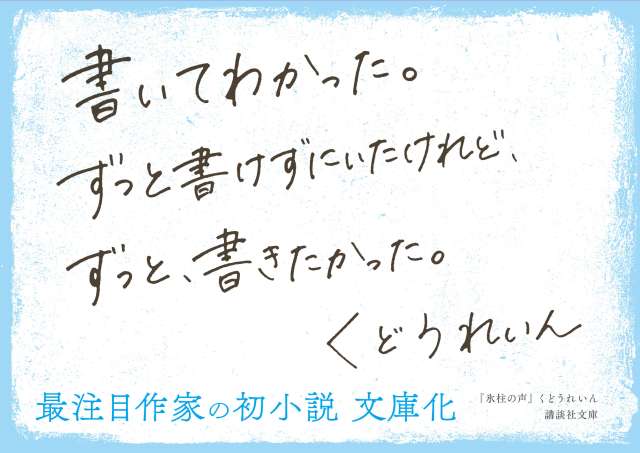 書いてわかった。
ずっと書けずにいたけれど、
ずっと、書きたかった。
くどうれいん
最注目作家の初小説 文庫化
『氷柱の声』くどうれいん
講談社文庫